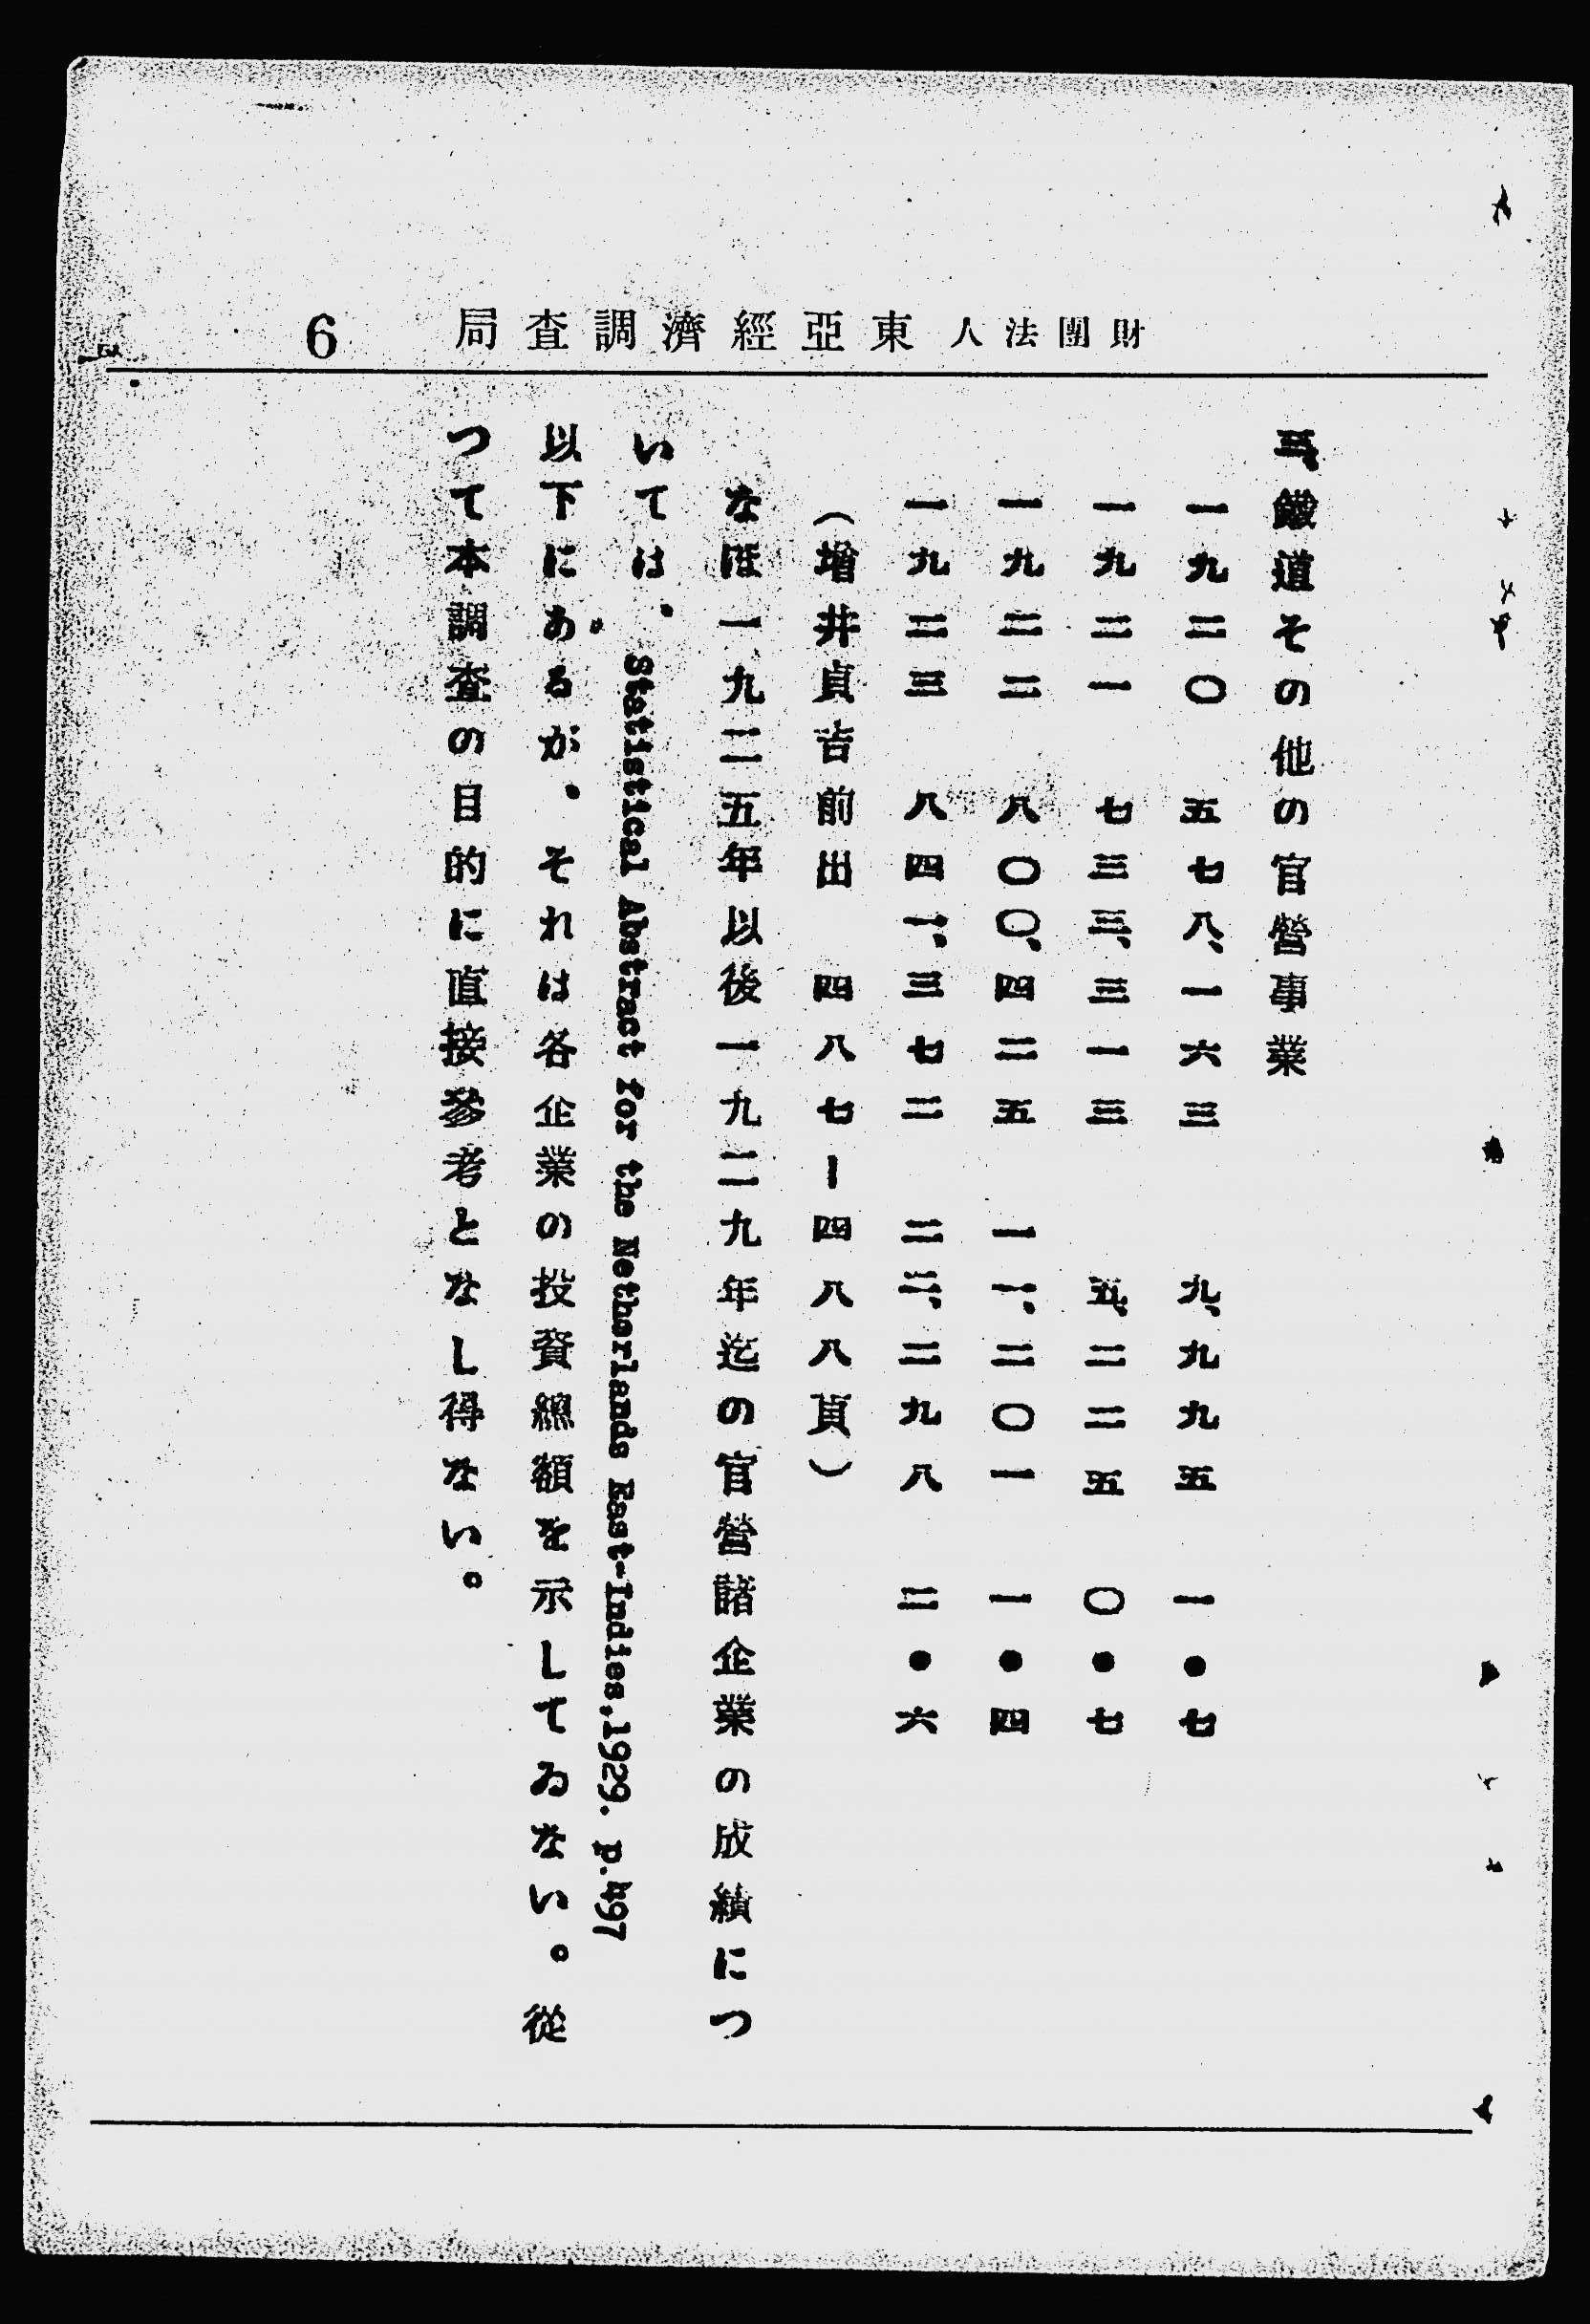 財團法人 東亞經濟調査局
6
三、鐵道その他の官營事業
一九二〇 五七八、一六三 九、九九五 一・七
一九二一 七三三、三一三 五、二二五 〇・七
一九二二 八〇〇、四二五 一一、二〇一 一・四
一九二三 八四一、三七二 二二、二九八 二・六
(增井貞吉前出 四八七—四八八頁)
なほ一九二五年以後一九二九年迄の官營諸企業の成績につ
いては、Statistical Abstract for the Netherlands East-Indies,1929. p.497
以下にあるが、それは各企業の投資總額を示してゐない。從
つて本調査の目的に直接參考となし得ない。